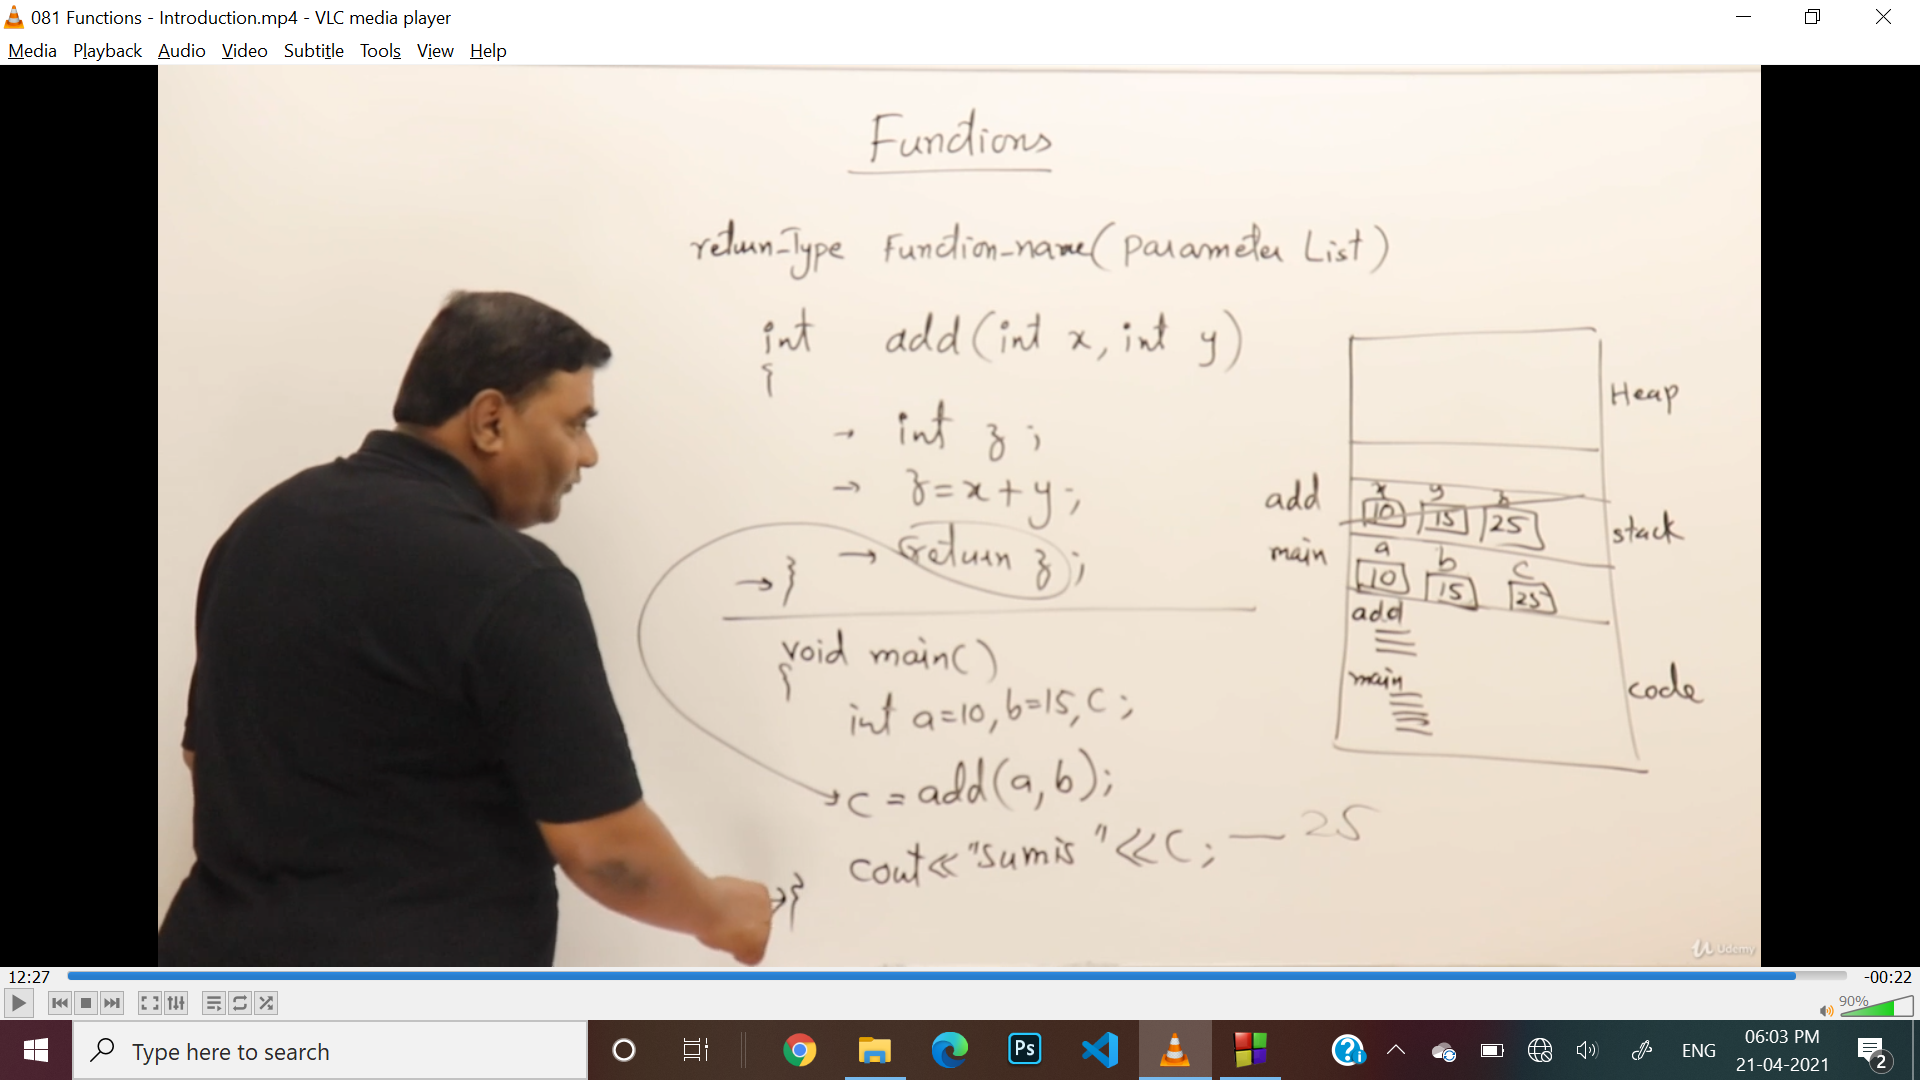 081 Functions - Introduction.mp4 - VLC media player
Media Playback Audio Video Subtitle Tools View Help
Functions
return_Type Function_name(Parameter List)
int add(int x, int y)
{
→ int z;
→ z=x+y;
→ return z;
→ }
void main()
{
int a=10, b=15, C;
→ c = add(a,b);
cout<<"sum is "<<C; — 25
→ }
Heap
add
x y
10 15 25
stack
main
a b c
10 15 25
add
main
code
Udemy
12:27
-00:22
90%
Type here to search
Ps
ENG
06:03 PM
21-04-2021
2